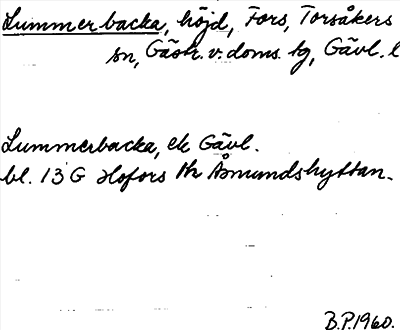 Lummerbacka, höjd, Fors, Torsåkers
sn, Gästr. v. doms. tg, Gävl. l
Lummerbacka, ek Gävl.
bl. 13 G Hofors th Åsmundshyttan.
B.P. 1960.